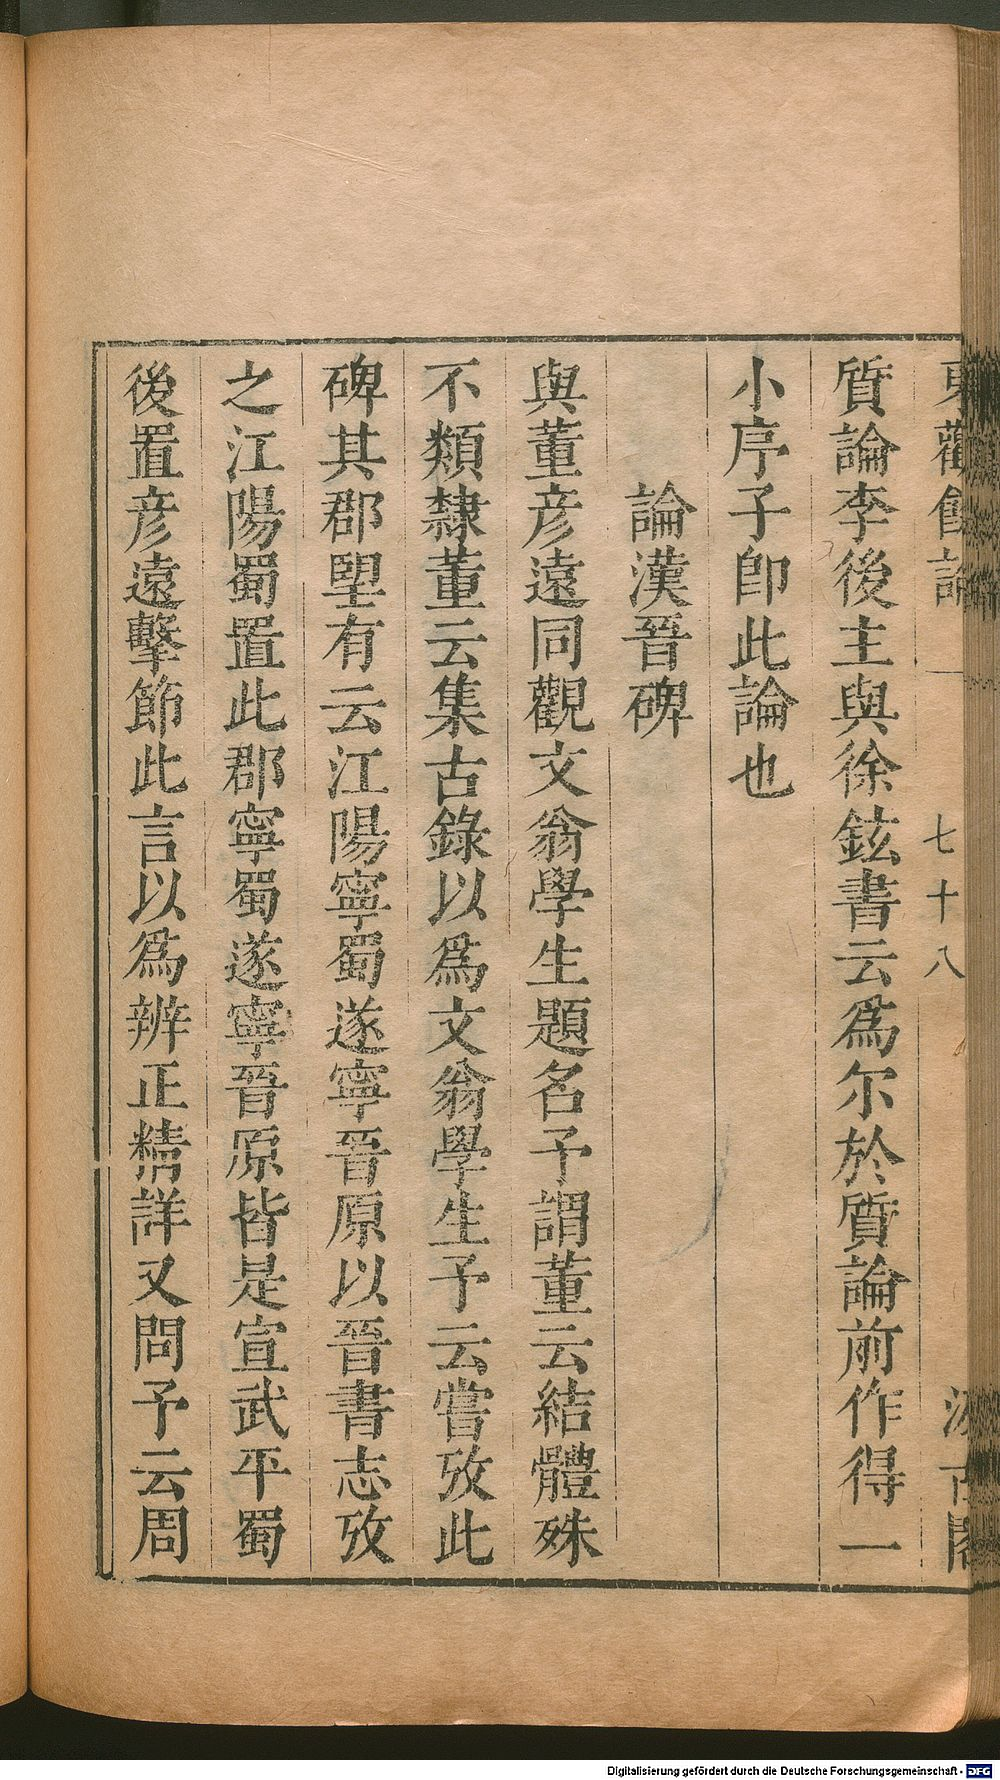 東觀餘論 七十八 汲古閣
質論李後主與徐鉉書云爲尔於質論前作得一
小序子卽此論也
論漢晉碑
與董彦遠同觀文翁學生題名予謂董云結體殊
不類隸董云集古錄以爲文翁學生予云嘗攷此
碑其郡朢有云江陽寧蜀遂寧晉原以晉書志攷
之江陽蜀置此郡寧蜀遂寧晉原皆是宣武平蜀
後置彦遠擊節此言以爲辨正精詳又問予云周
Digitalisierung gefördert durch die Deutsche Forschungsgemeinschaft - DFG